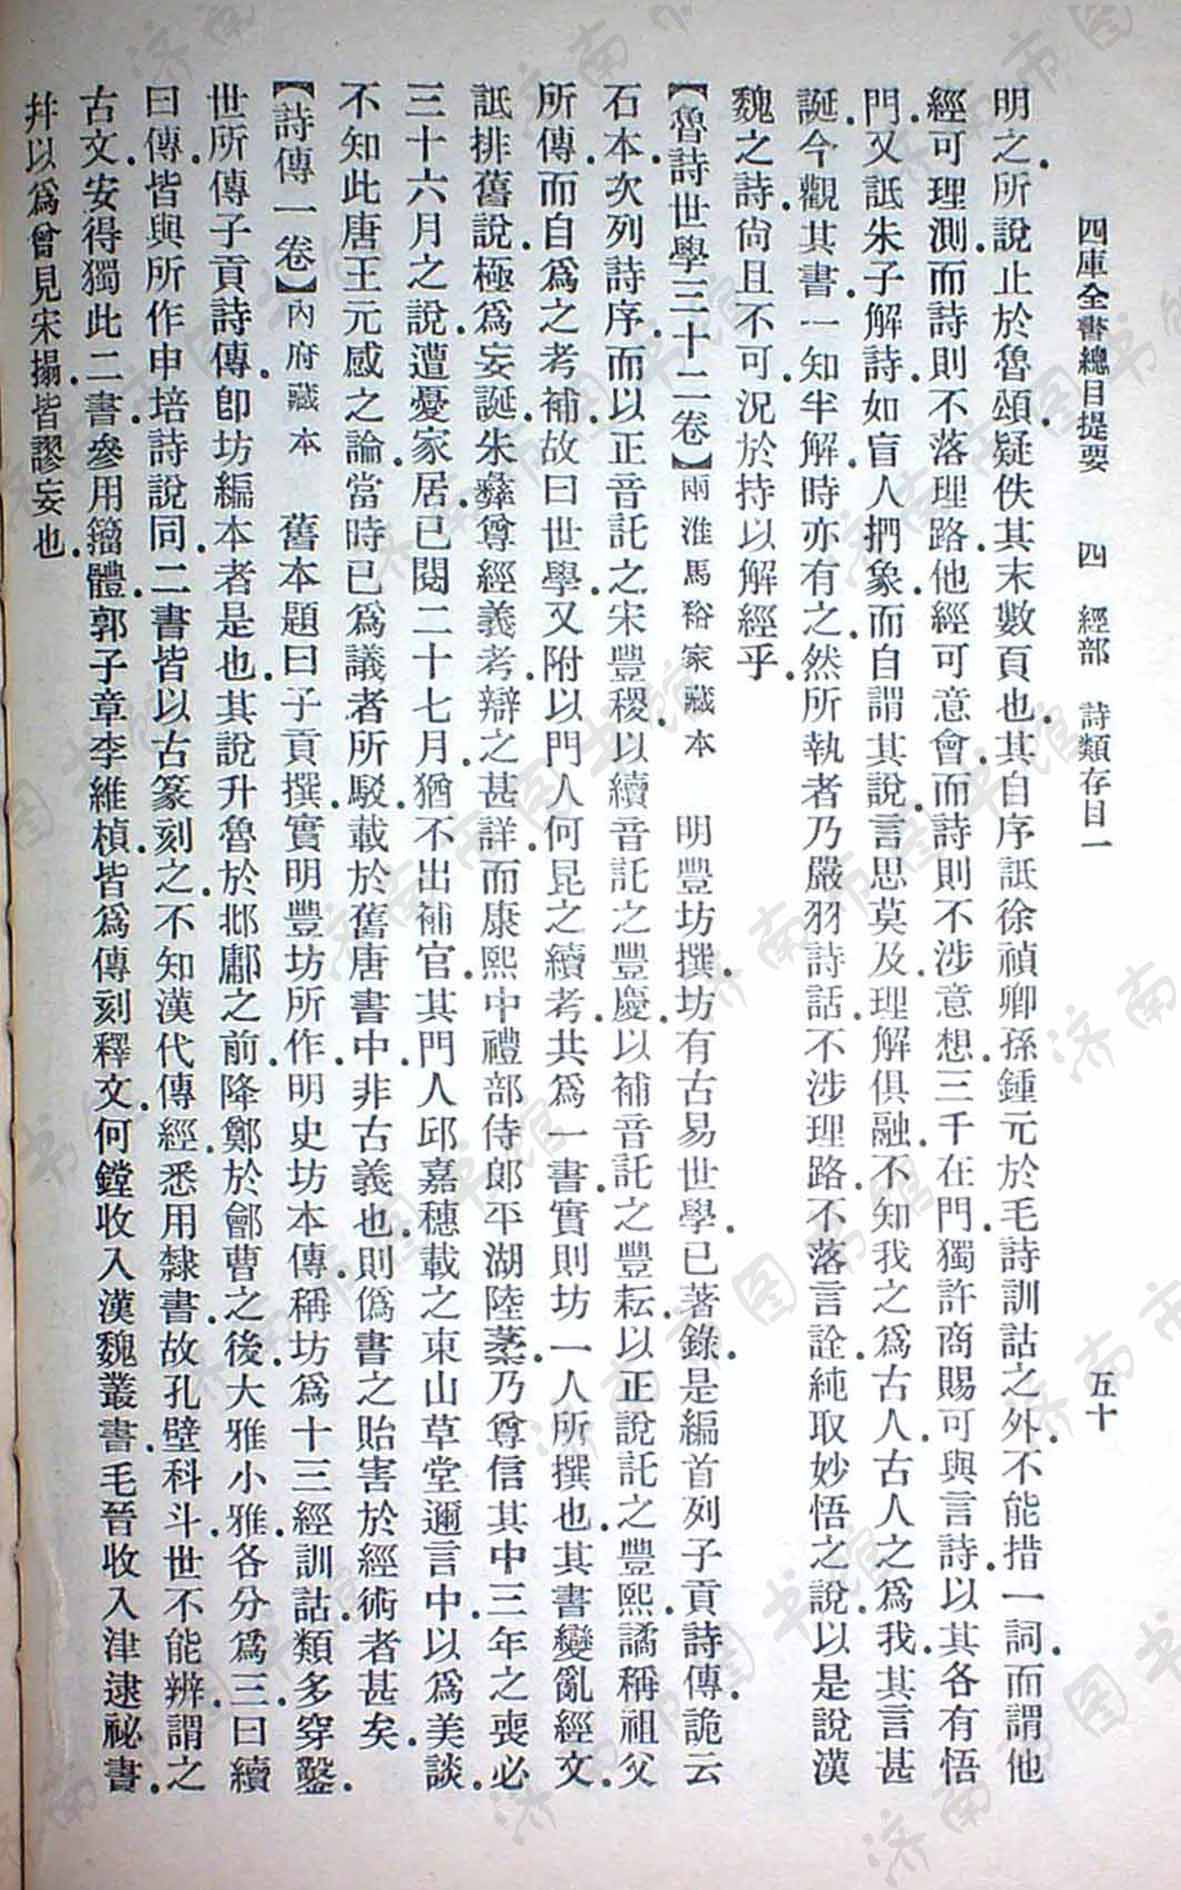 四庫全書總目提要　四　經部　詩類存目一　五十
明之.所說止於魯頌.疑佚其末數頁也.其自序詆徐禎卿孫鍾元於毛詩訓詁之外.不能措一詞.而謂他
經可理測.而詩則不落理路.他經可意會.而詩則不涉意想.三千在門.獨許商賜可與言詩.以其各有悟
門.又詆朱子解詩.如盲人捫象.而自謂其說.言思莫及.理解俱融.不知我之爲古人.古人之爲我.其言甚
誕.今觀其書.一知半解.時亦有之.然所執者乃嚴羽詩話.不涉理路.不落言詮.純取妙悟之說.以是說漢
魏之詩.尙且不可.況於持以解經乎.
【魯詩世學三十二卷】兩淮馬裕家藏本　明豐坊撰.坊有古易世學.已著錄.是編首列子貢詩傳.詭云
石本.次列詩序.而以正音託之宋豐稷.以續音託之豐慶.以補音託之豐耘.以正說託之豐熙.譎稱祖父
所傳.而自爲之考補.故曰世學.又附以門人何昆之續考.共爲一書.實則坊一人所撰也.其書變亂經文.
詆排舊說.極爲妄誕.朱彝尊經義考.辯之甚詳.而康熙中禮部侍郎平湖陸棻.乃尊信其中三年之喪必
三十六月之說.遭憂家居.已閱二十七月.猶不出補官.其門人邱嘉穗載之東山草堂邇言中.以爲美談.
不知此唐王元感之論.當時已爲議者所駁.載於舊唐書中.非古義也.則僞書之貽害於經術者甚矣.
【詩傳一卷】內府藏本　舊本題曰子貢撰.實明豐坊所作.明史坊本傳.稱坊爲十三經訓詁.類多穿鑿.
世所傳子貢詩傳.卽坊編本者是也.其說升魯於邶鄘之前.降鄭於鄶曹之後.大雅小雅.各分爲三.曰續
曰傳.皆與所作申培詩說同.二書皆以古篆刻之.不知漢代傳經.悉用隸書.故孔壁科斗.世不能辨.謂之
古文.安得獨此二書.參用籀體.郭子章李維楨.皆爲傳刻釋文.何鏜收入漢魏叢書.毛晉收入津逮祕書.
幷以爲曾見宋搨.皆謬妄也.